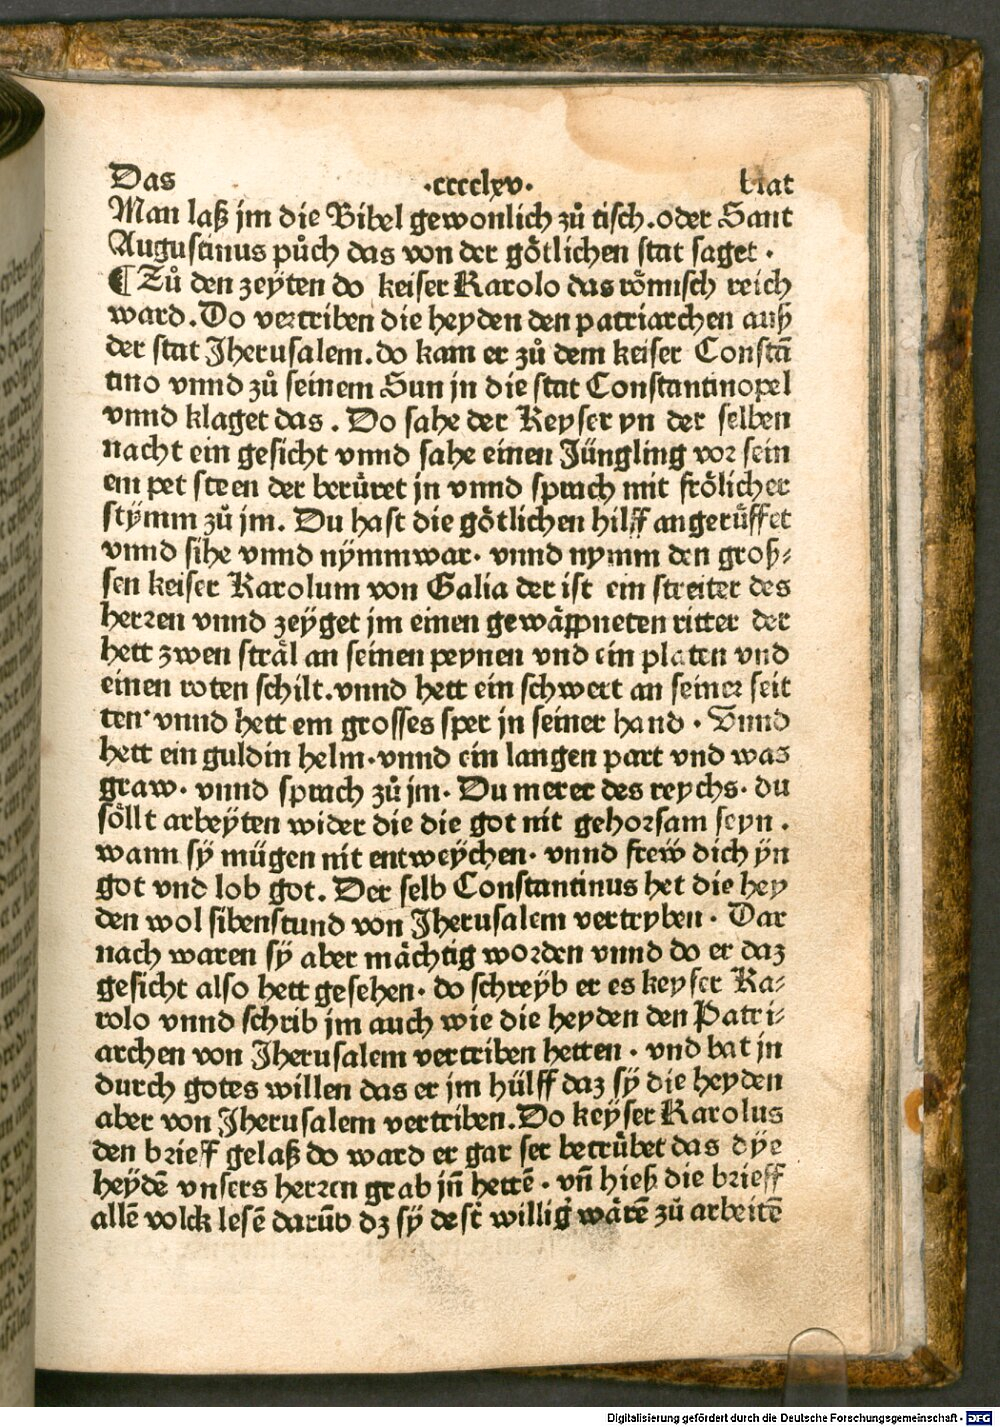 Das .cccclxv. blat
Man laß jm die Bibel gewonlich zů tisch. oder Sant
Augustinus půch das von der götlichen stat saget .
¶ Zů den zeyten do keiser Karolo das römisch reich
ward. Do vertriben die heyden den patriarchen auß
der stat Jherusalem. do kam er zů dem keiser Constā
tino vnnd zů seinem Sun in die stat Constantinopel
vnnd klaget das . Do sahe der Keyser yn der selben
nacht ein gesicht vnnd sahe einen Jüngling vor sein
em pet steen der berüret in vnnd sprach mit frölicher
stymm zů jm. Du hast die götlichen hilff angerüffet
vnnd sihe vnnd nÿmmwar. vnnd nymm den groß⸗
sen keiser Karolum von Galia der ist ein streiter des
herren vnnd zeÿget jm einen gewäppneten ritter der
hett zwen sträl an seinen peynen vnd ein platen vnd
einen roten schilt. vnnd hett ein schwert an seiner seit
ten. vnnd hett em grosses sper in seiner hand . Vnnd
hett ein guldin helm. vnnd ein langen part vnd was
graw. vnnd sprach zů jm. Du merer des reychs. du
söllt arbeÿten wider die die got nit gehorsam seyn .
wann sÿ mügen nit entweÿchen. vnnd frew̋ dich ÿn
got vnd lob got. Der selb Constantinus het die hey
den wol sibenstund von Jherusalem vertryben . Dar
nach waren sÿ aber mächtig worden vnnd do er daz
gesicht also hett gesehen. do schreÿb er es keyser Ka⸗
rolo vnnd schrib jm auch wie die heyden den Patri⸗
archen von Jherusalem vertriben hetten . vnd bat in
durch gotes willen das er jm hülff daz sÿ die heyden
aber von Jherusalem vertriben. Do keÿser Karolus
den brieff gelaß do ward er gar ser betrübet das dÿe
heÿdē vnsers herren grab jn̄ hettē . vn̄ hieß die brieff
allē volck lesē darūb dz sÿ dest̉ willig̉ wärē zů arbeitē
Digitalisierung gefördert durch die Deutsche Forschungsgemeinschaft - DFG